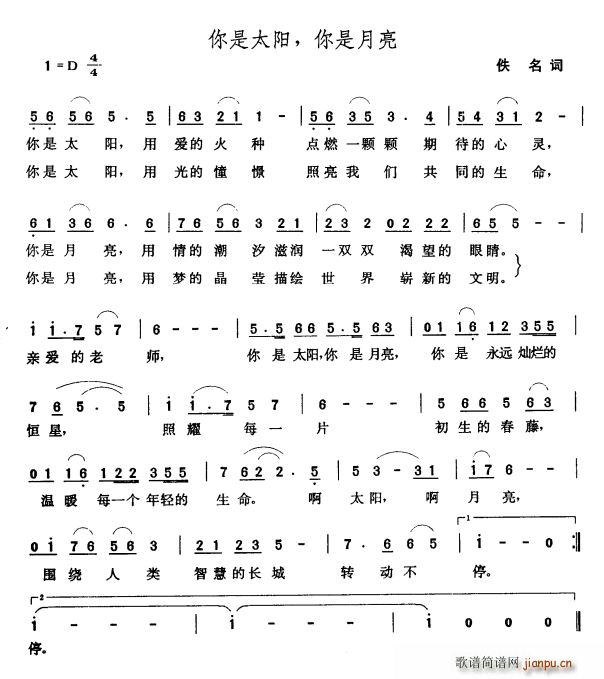 你是太阳，你是月亮
1=D 4/4
佚 名 词
5 6 5 6 5 . 5 | 6 3 2 1 1 - | 5 6 3 5 3 . 4 | 5 4 3 1 2 - |
你是 太 阳， 用 爱的 火 种 点燃 一颗颗 期 待的 心 灵，
你是 太 阳， 用 光的 憧 憬 照亮 我们 共 同的 生 命，
6 1 3 6 6 . 6 | 7 6 5 6 3 2 1 | 2 3 2 0 2 2 2 | 6 5 5 - - |
你是 月 亮， 用 情的 潮 汐滋润 一双双 渴 望的 眼睛。
你是 月 亮， 用 梦的 晶 莹描绘 世 界 崭 新的 文明。
i i . 7 5 7 | 6 - - - | 5 . 5 6 6 5 . 5 6 3 | 0 1 1 6 1 2 3 5 5 |
亲 爱 的 老 师， 你 是 太阳，你 是 月亮， 你 是 永远 灿烂的
7 6 5 . 5 | i i . 7 5 7 | 6 - - - | 5 6 6 5 6 3 |
恒 星， 照 耀 每 一 片 初 生的 春 藤，
0 1 1 6 1 2 2 3 5 5 | 7 6 2 2 . 5 | 5 3 - 3 1 | i 7 6 - - |
温 暖 每一个 年轻的 生 命。 啊 太阳， 啊 月 亮，
0 i 7 6 5 6 3 | 2 1 2 3 5 - | 7 . 6 6 5 | i - - 0 :||
围 绕 人 类 智慧的长 城 转 动 不 停。
i - - - | i - - - | i - - - | i 0 0 0 ||
停。
歌谱简谱网
jianpu.cn